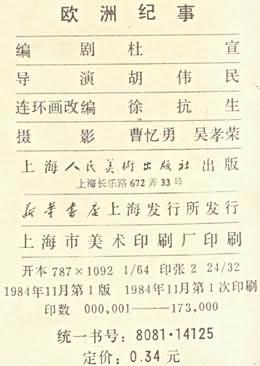 欧洲纪事
编剧 杜宣
导演 胡伟民
连环画改编 徐抗生
摄影 曹忆勇 吴孝荣
上海人民美術出版社出版
上海长乐路672弄33号
新华书店上海发行所发行
上海市美术印刷厂印刷
开本 787×1092 1/64 印张 2 24/32
1984年11月第1版 1984年11月第1次印刷
印数 000,001——173,000
统一书号：8081·14125
定价：0.34元